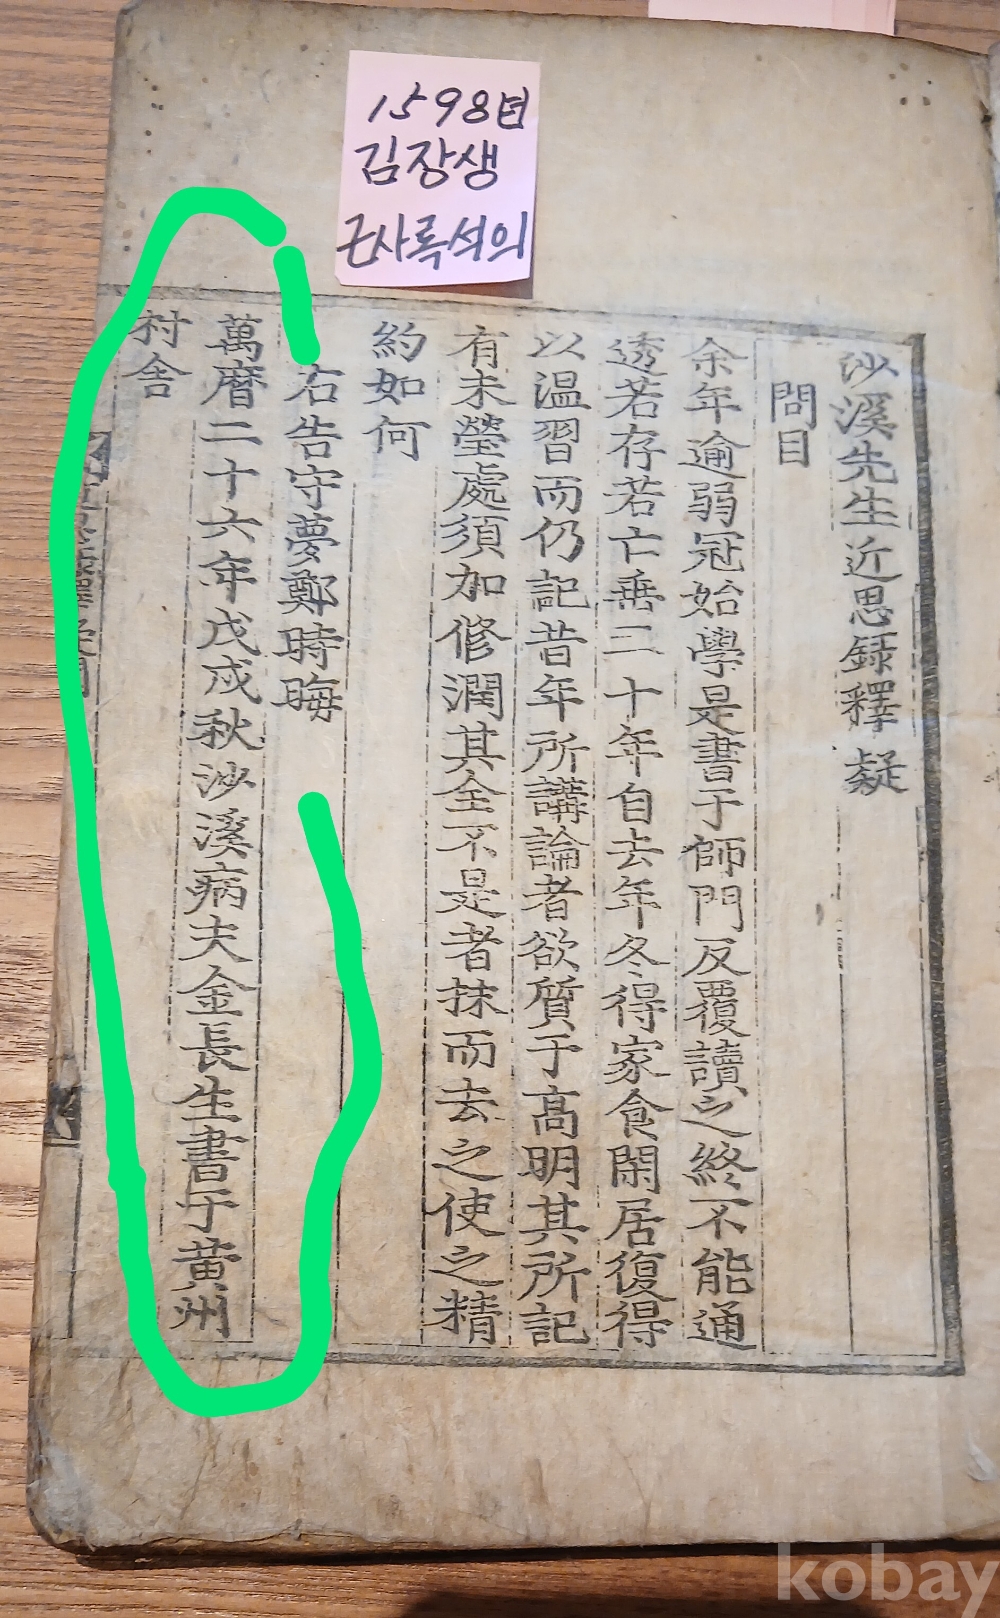 1598년
김장생
근사록석의
沙溪先生近思錄釋疑
問目
余年逾弱冠始學是書于師門反覆讀之終不能通
透若存若亡垂二十年自去年冬得家食閑居復得
以温習而仍記昔年所講論者欲質于高明其所記
有未瑩處須加修潤其全不是者抹而去之使之精
約如何
右告守夢鄭時晦
萬曆二十六年戊戌秋沙溪病夫金長生書于黃州
村舍
kobay